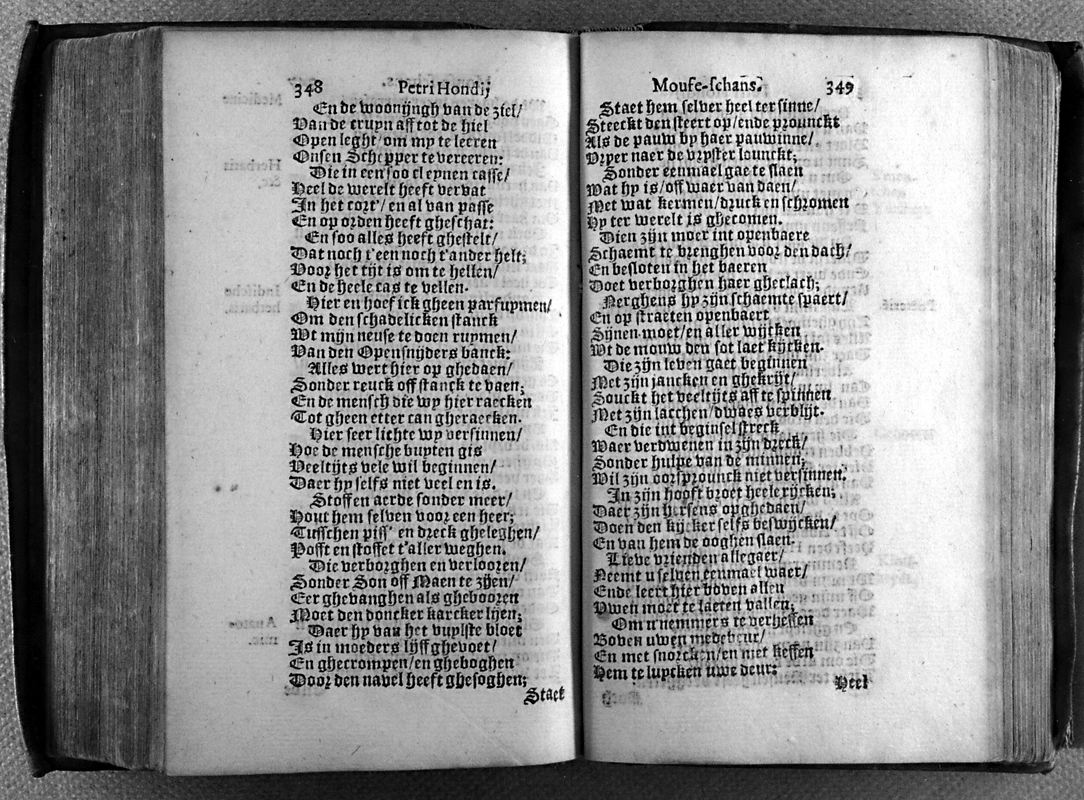 348 Petri Hondij
En de woonijngh van de ziel/
Van de cruyn aff tot de hiel
Open leght/om my te leeren
Onsen Schepper te vereeren:
Die in een soo cleynen casse/
Heel de werelt heeft vervat
In het cort'/en al van passe
En op orden heeft gheschat:
En soo alles heeft ghestelt/
Dat noch t'een noch t'ander helt;
Voor het tijt is om te hellen/
En de heele cas te vellen.
Hier en hoef ick gheen parfuymen/
Om den schadelicken stanck
Wt mijn neuse te doen ruymen/
Van den Opensnijders banck:
Alles wert hier op ghedaen/
Sonder reuck off stanck te vaen;
En de mensch die wy hier raecken
Tot gheen etter can gheraecken.
Hier seer lichte wy versinnen/
Hoe de mensche buyten gis
Veeltijts vele wil beginnen/
Daer hy selfs niet veel en is.
Stoffen aerde sonder meer/
Hout hem selven voor een heer;
Tusschen piss' en dreck gheleghen/
Pofft en stoffet t'aller weghen.
Die verborghen en verlooren/
Sonder Son off Maen te zijen/
Eer ghevanghen als ghebooren
Moet den doncker karcker lijen;
Daer hy van het vuylste bloet
Is in moeders lijff ghevoet/
En ghecrompen/en gheboghen
Door den navel heeft ghesoghen;
Staet
Mouse-schans. 349
Staet hem selver heel ter sinne/
Steeckt den steert op/ende prounckt
Als de pauw by haer pauwinne/
Vryer naer de vryster lounckt;
Sonder eenmael gae te slaen
Wat hy is/off waer van daen/
Met wat kermen/druck en schromen
Hy ter werelt is ghecomen.
Dien zijn moer int openbaere
Schaemt te brenghen voor den dach/
En besloten in het vaeren
Doet verborghen haer ghelach;
Nerghens hy zijn schaemte spaert/
En op straeten openbaert
Sijnen moet/en aller wijtken
Wt de mouw den sot laet kijcken.
Die zijn leven gaet beginnen
Met zijn jancken en ghekrijt/
Souckt het veeltijts aff te spinnen
Met zijn lacchen/dwaes verblijt.
En die int beginsel streck
Waer verdwenen in zijn dreck/
Sonder hulpe van de minnen;
Wil zijn oorsprounck niet versinnen.
In zijn hooft vroet heele rijcken;
Daer zijn hersens opghedaen/
Doen den kijcker selfs beswijcken/
En van hem de ooghen slaen.
Lieve vrienden allegaer/
Neemt u selven eenmael waer/
Ende leert hier boven allen
Uwen moet te laeten vallen;
Om u nemmers te verheffen
Boven uwen medebeur/
En met snorcken/en niet keffen
Hem te luycken uwe deur:
Heel